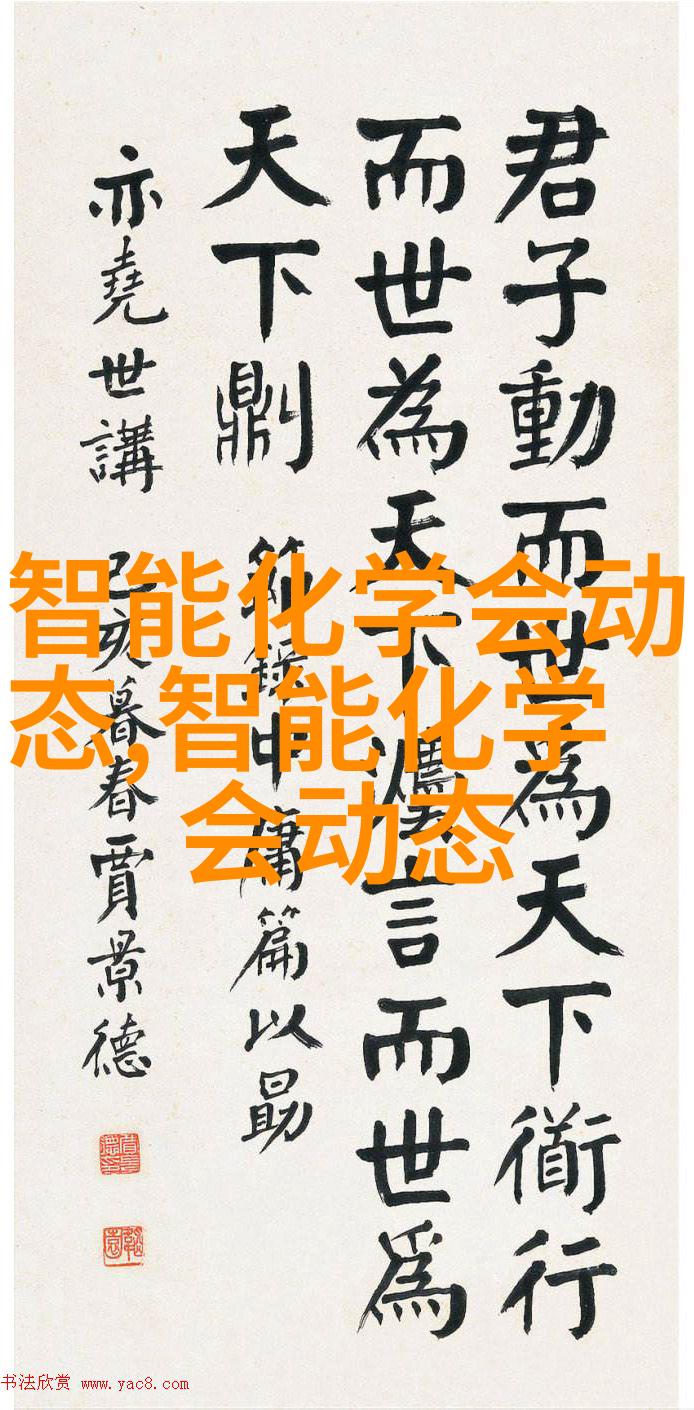 君子動而世為天下衜行
而世為天下灋言而世為
天下則 節錄中庸篇以勗
亦堯世講 己亥暮春賈景德
智能化学会动
态,智能化学
会动态
书法欣赏 www.yac8.com